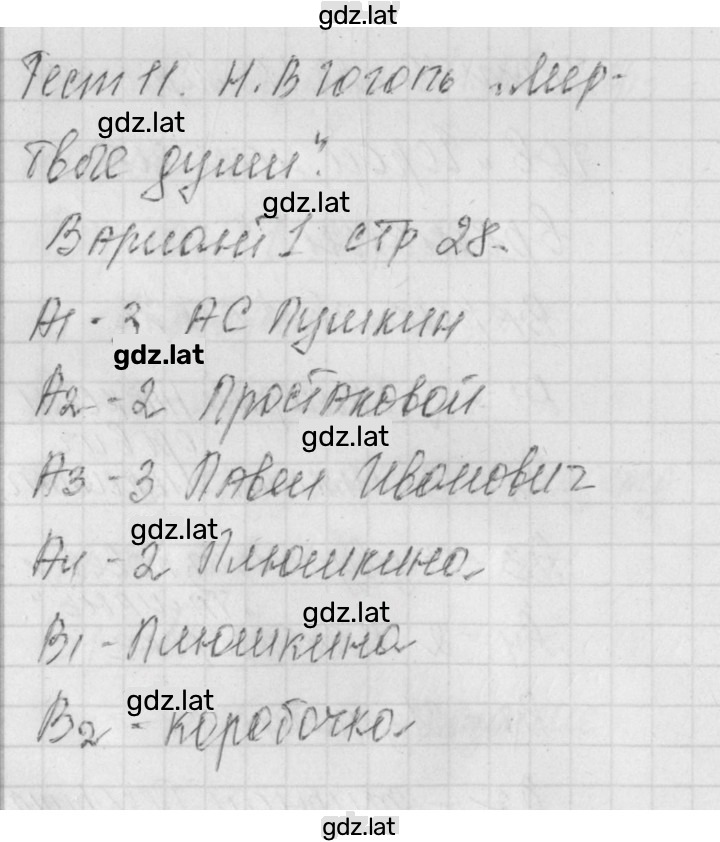 gdz.lat
Тест 11. Н.В Гоголь „Мер-
gdz.lat
твые души".
gdz.lat
Вариант 1 стр 28.
А1 - 3 АС Пушкин
gdz.lat
А2 - 2 Простаковой
gdz.lat
А3 - 3 Павел Иванович
gdz.lat
А4 - 2 Плюшкина
gdz.lat
В1 - Плюшкина
gdz.lat
В2 - коробочка
gdz.lat